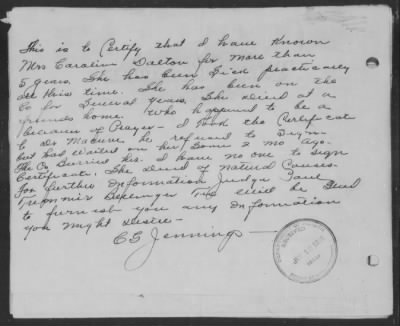 This is to Certify that I have Known
Mrs Caroline Dalton for more than
5 years. She has been Sick practically
all this time. She has been on the
Co for Several years. She died at a
friends home. Who happened to be a
believer of Prayer - I took the Certificate
to Dr he refused to Sign.
but had waited on her Some 2 mo ago.
The Co Buried her. I have no one to sign
Certificate. She died of natural Causes.
For further Information Judge Paul
will be Glad
to furnish you any Information
you might desire -
CG Jennings -